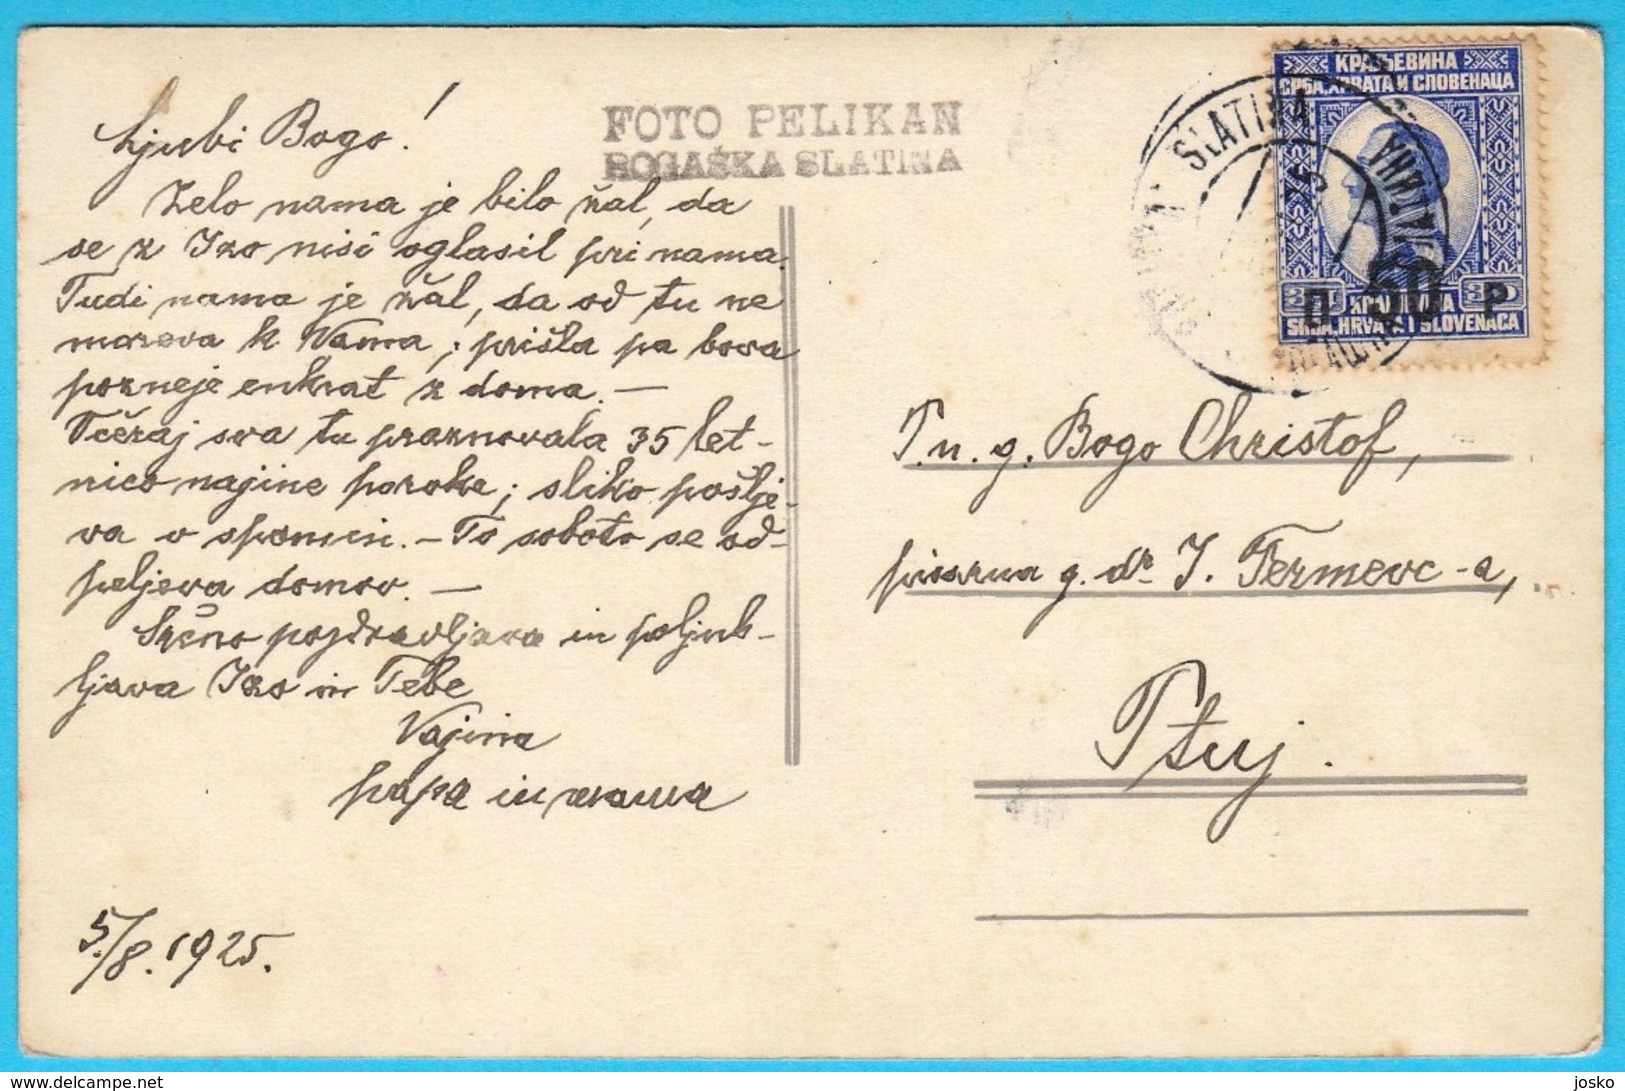 Ljubi Bogo!
Zelo nama je bilo žal, da
se z Izo nisi oglasil pri nama.
Tudi nama je žal, da od tu ne
moreva k Vama; prišla pa bova
pozneje enkrat z doma. —
Včeraj sva tu praznovala 35 let-
nico najine poroke; sliko pošlje-
va v spomin. – To soboto se od-
peljeva domov. —
Srčno pozdravljava in poljub-
ljava Izo in Tebe
Vajina
papa in mama
5./8. 1925.
FOTO PELIKAN
ROGAŠKA SLATINA
SLATINA
КРАЉЕВИНА
СРБА, ХРВАТА И СЛОВЕНАЦА
П 50 P
KRALJEVINA
SRBA, HRVATA I SLOVENACA
T. n. g. Bogo Christof,
pisarna g. dr. I. Fermevc-a,
Ptuj.
delcampe.net
josko